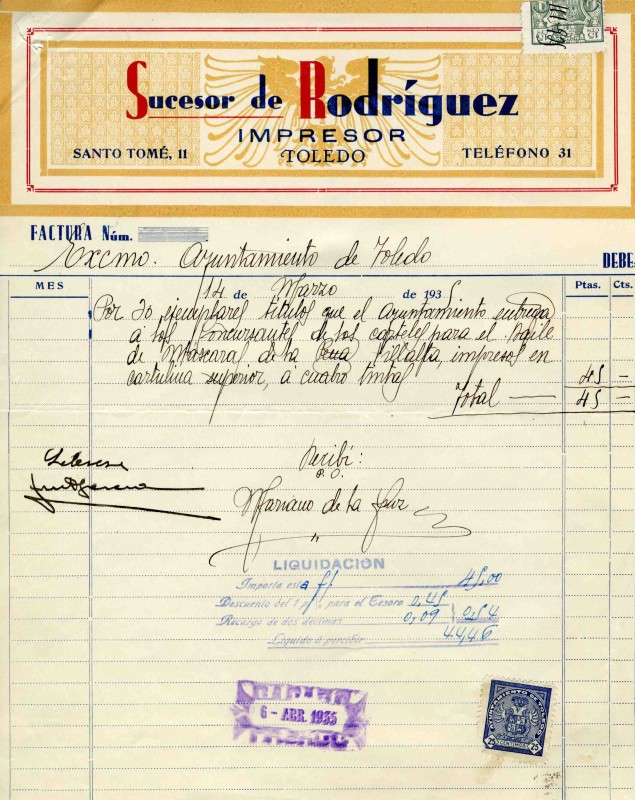 Sucesor de Rodríguez
IMPRESOR
SANTO TOMÉ, 11 TOLEDO TELÉFONO 31
FACTURA Núm.
Excmo. Ayuntamiento de Toledo DEBE
MES 14 de Marzo de 1935 Ptas. Cts.
Por 30 ejemplares titulos que el Ayuntamiento entrega
á los concursantes de los carteles para el Baile
de Máscaras de la Peña Villalta, impresos en
cartulina superior, á cuatro tintas 45 —
Total — 45 —
Recibí:
P. O.
Mariano de la
LIQUIDACIÓN
Importa esta f/. 45,00
Descuento del 1 p% para el Tesoro 0,45
Recargo de dos décimas 0,09 0,54
Líquido á percibir 44,46
6 - ABR. 1935
AYUNTAMIENTO DE TOLEDO
25 CENTIMOS 25